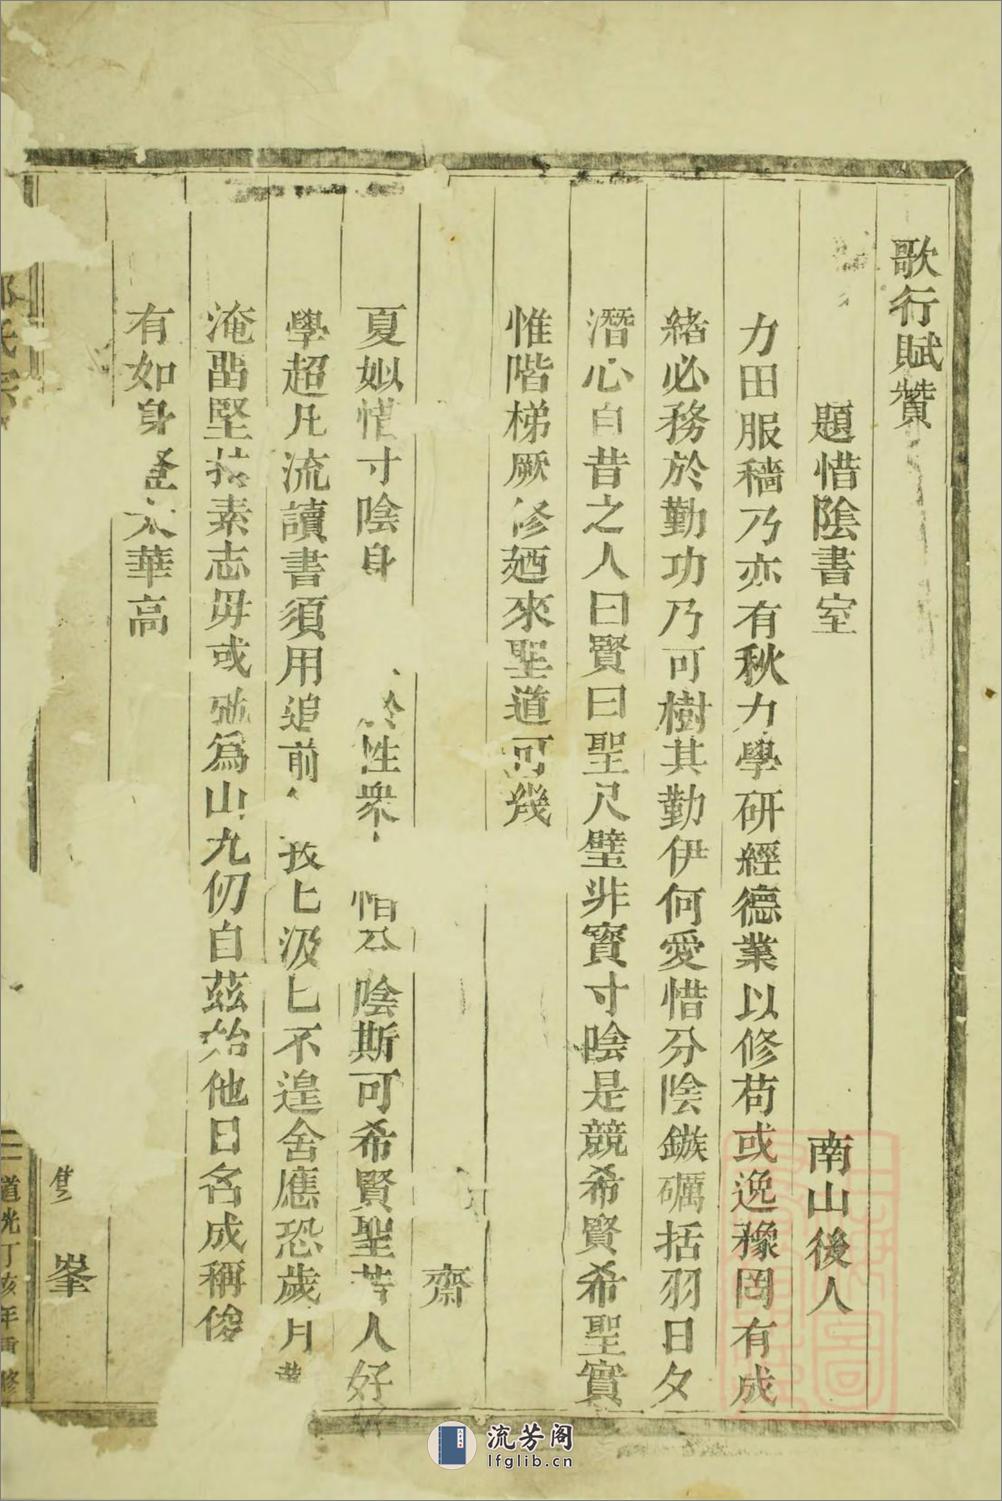 歌行賦贊
題惜陰書室
南山後人
力田服穡乃亦有秋力學研經德業以修苟或逸豫罔有成
緒必務於勤功乃可樹其勤伊何愛惜分陰鏃礪括羽日夕
潛心自昔之人曰賢曰聖尺璧非寶寸陰是競希賢希聖實
惟階梯厥修廼來聖道可幾
齋
夏姒惜寸陰身 於性衆 惜分陰斯可希賢聖苦人好
學超凡流讀書須用追前 孜匕汲匕不遑舍應恐歲月
淹留堅持素志毋或弛爲山九仞自茲始他日名成稱俊
有如身登太華高
峯
氏宗
道光丁亥年重修
流芳阁
lfglib.cn